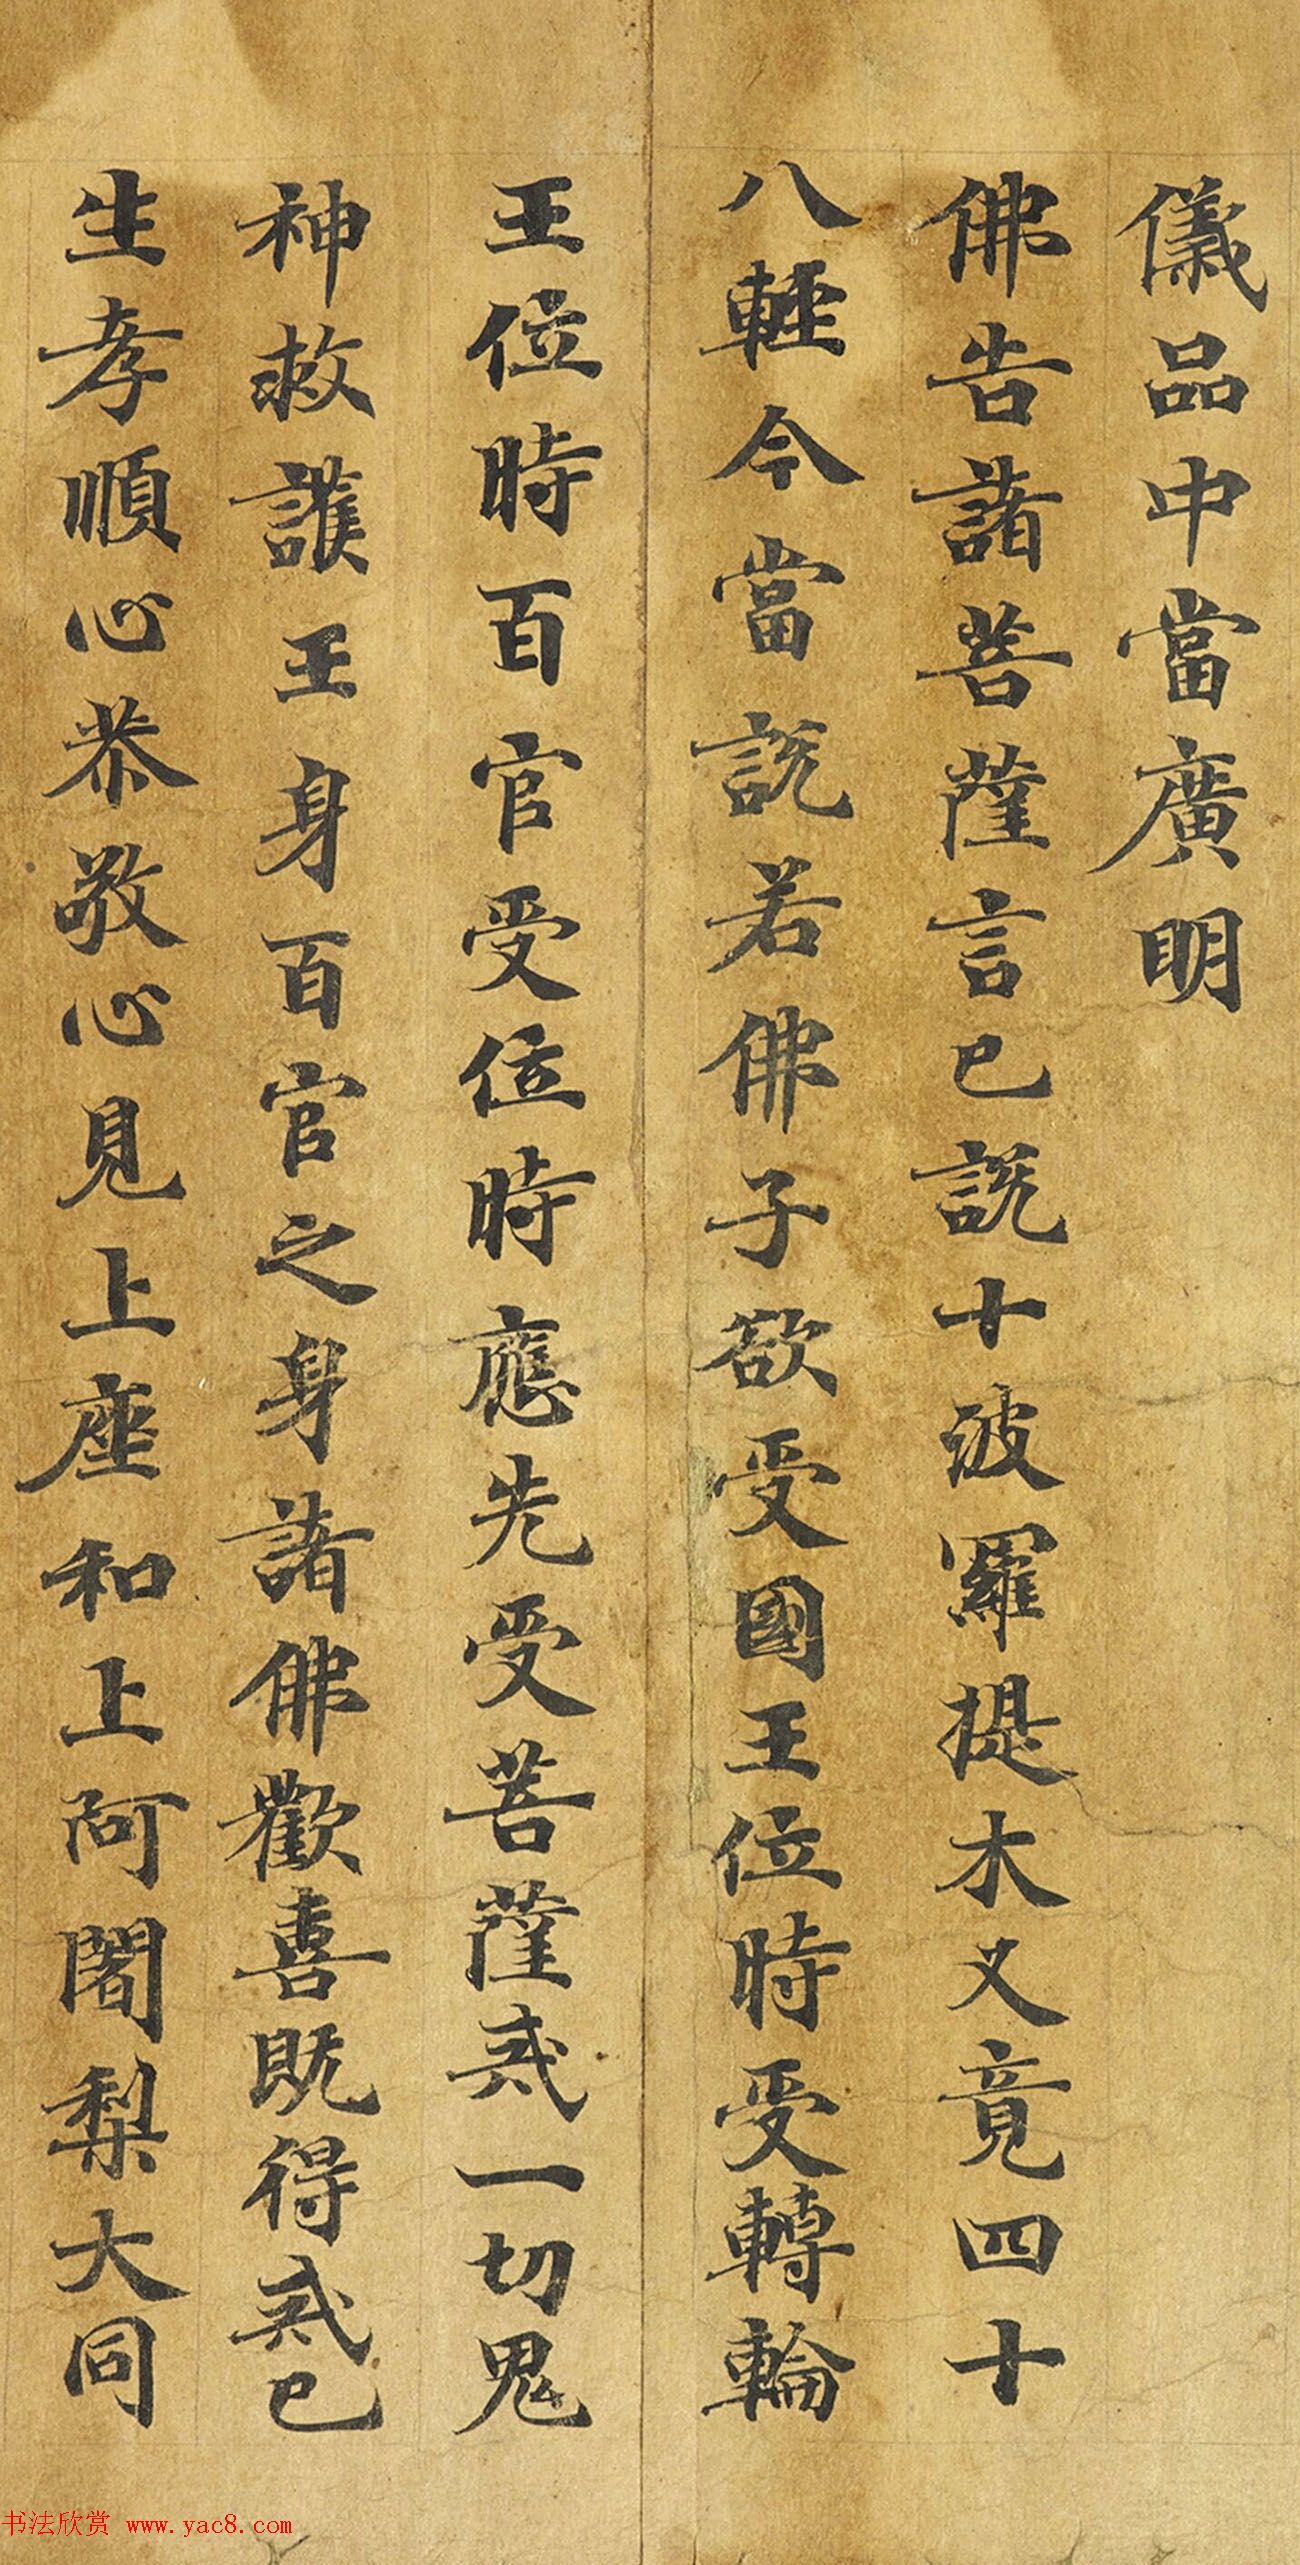 儀品中當廣明
佛告諸菩薩言已說十波羅提木叉竟四十
八輕今當說若佛子欲受國王位時受轉輪
王位時百官受位時應先受菩薩戒一切鬼
神救護王身百官之身諸佛歡喜既得戒已
生孝順心恭敬心見上座和上阿闍梨大同
书法欣赏 www.yac8.com